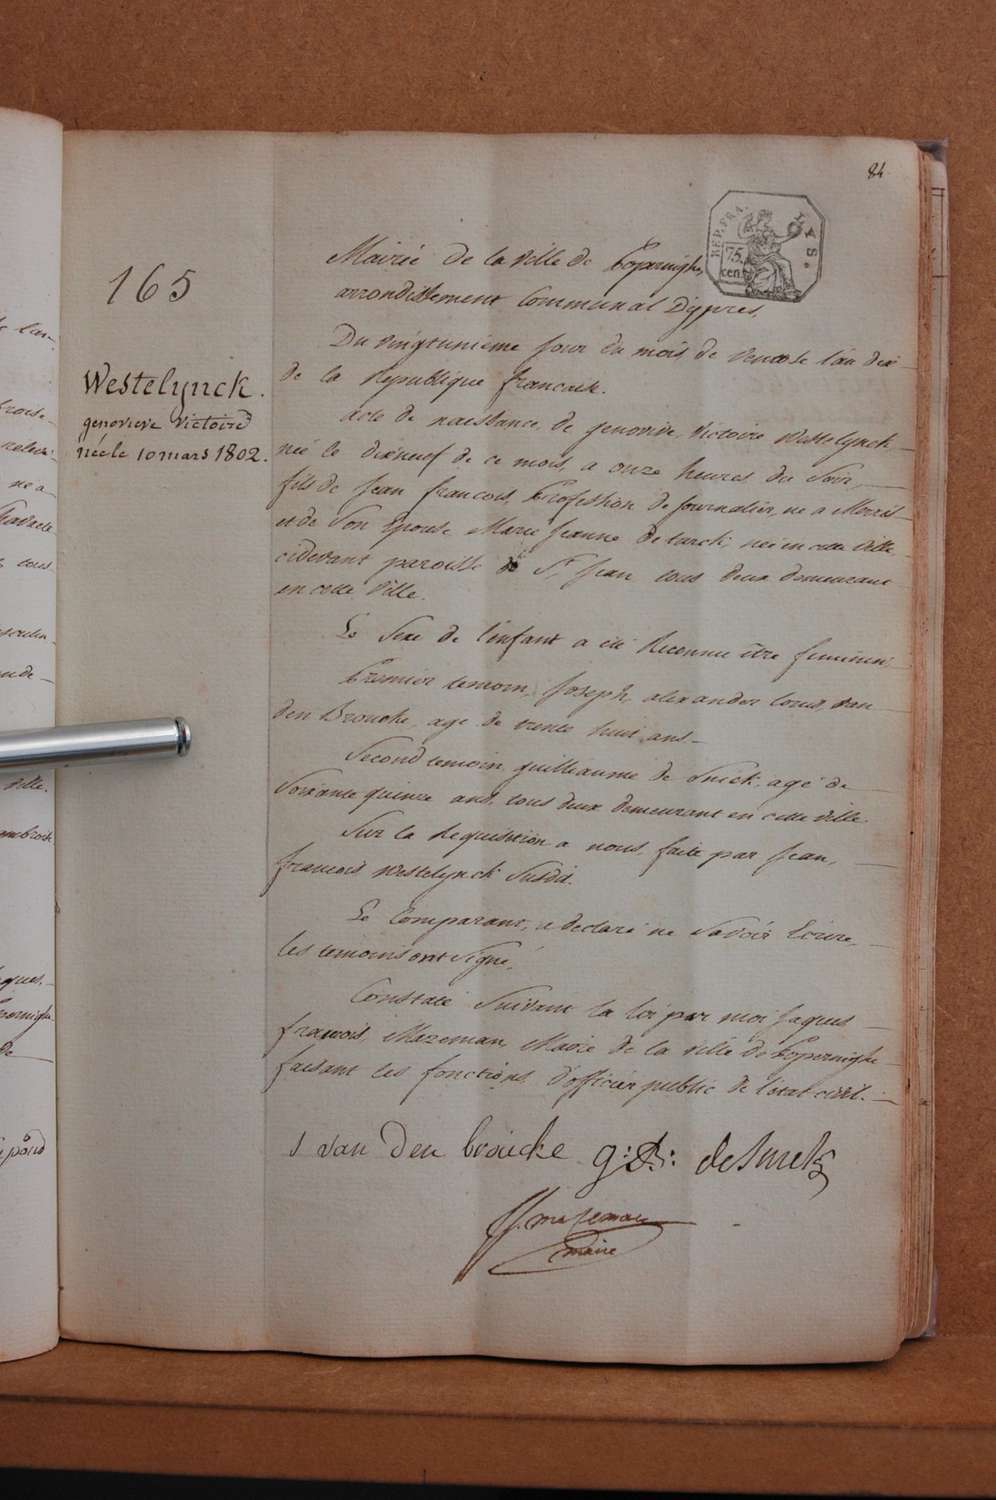 84
REP. FRA.
LYS.
75
cen.
165
Westelynck.
genovieve victoire
née le 10 mars 1802.
Mairie de la ville de Poperinghe,
arrondissement Communal D'ypres.
Du vingtunieme jour du mois de ventose l'an dix
de la Republique francaise.
Acte de naissance, de genovive, victoire Westelynck
née le dixneuf de ce mois, a onze heures du Soir,
fils de Jean francois, Profession de Journalier, né a Merris
et de Son Epouse Marie Jeanne De turck, née en cette ville
cidevant paroisse de St. Jean tous deux demeurant
en cette ville.
Le Sexe de l'enfant a été Reconnu être feminin
Premier temoin, Joseph, alexander Louis van
den Brouche, agé de trente huit ans
Second temoin, guilleaume de Smick, agé de
Soixante quinze ans, tous deux demeurant en cette ville
Sur la Requisition a nous, faite par Jean,
francois Westelynck Susdit.
Le Comparant, a declaré ne Savoir Ecrire,
les temoins ont Signé,
Constaté Suivant la loi par moi Jaques
francois, Mazeman Marie de la ville de Poperinghe
faisant les fonctions d'officier public de l'état civil.
J van Den broucke g: D: deSmck
JJ. mazeman
maire